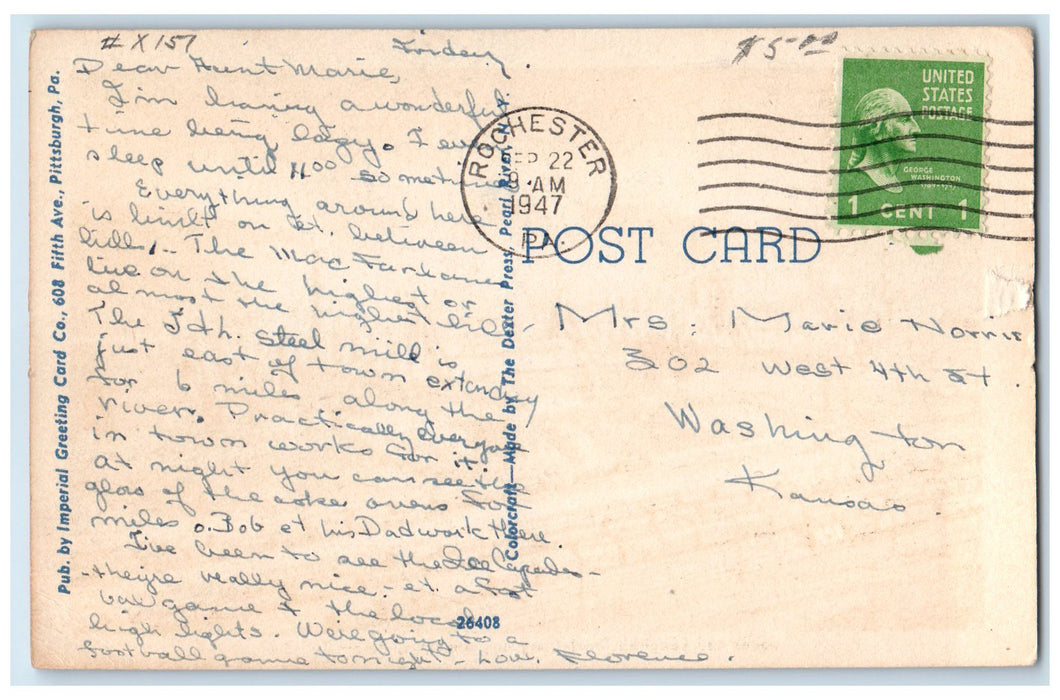 # X 151
$5.00
Friday
Dear Aunt Marie,
I'm having a wonderful
time being lazy. I even
sleep until 11:00 sometimes
Everything around here
is built on or between
hills. The Mac Farlanes
live on the highest or
almost the highest hill.
The J & L steel mill is
just east of town extending
for 6 miles along the
river. Practically everyone
in town works for it.
At night you can see the
glow of the coke ovens for
miles. Bob & his Dad work there.
I've been to see the Ice Capades -
they're really nice - & a foot
ball game & the local
high lights. We're going to a
football game tonight - Love, Florence.
Pub. by Imperial Greeting Card Co., 608 Fifth Ave., Pittsburgh, Pa.
"Colorcraft—Made by The Dexter Press, Pearl River, N. Y.
26408
ROCHESTER
SEP 22
9 AM
1947
PA.
UNITED
STATES
POSTAGE
GEORGE
WASHINGTON
1 CENT 1
POST CARD
Mrs. Marie Norris
302 West 4th St.
Washington
Kansas